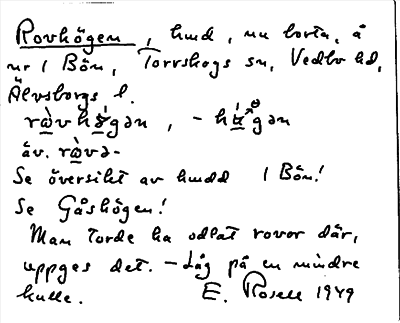 Rovhögen, hmd, nu borta, å
nr 1 Bön, Torrskogs sn, Vedbo hd,
Älvsborgs l.
rὼvhǿgən, -hǿgən
äv. rὼvə-
Se översikt av hmdd 1 Bön!
Se Gåshögen!
Man torde ha odlat rovor där,
uppges det. - Låg på en mindre
kulle. E. Rosell 1949